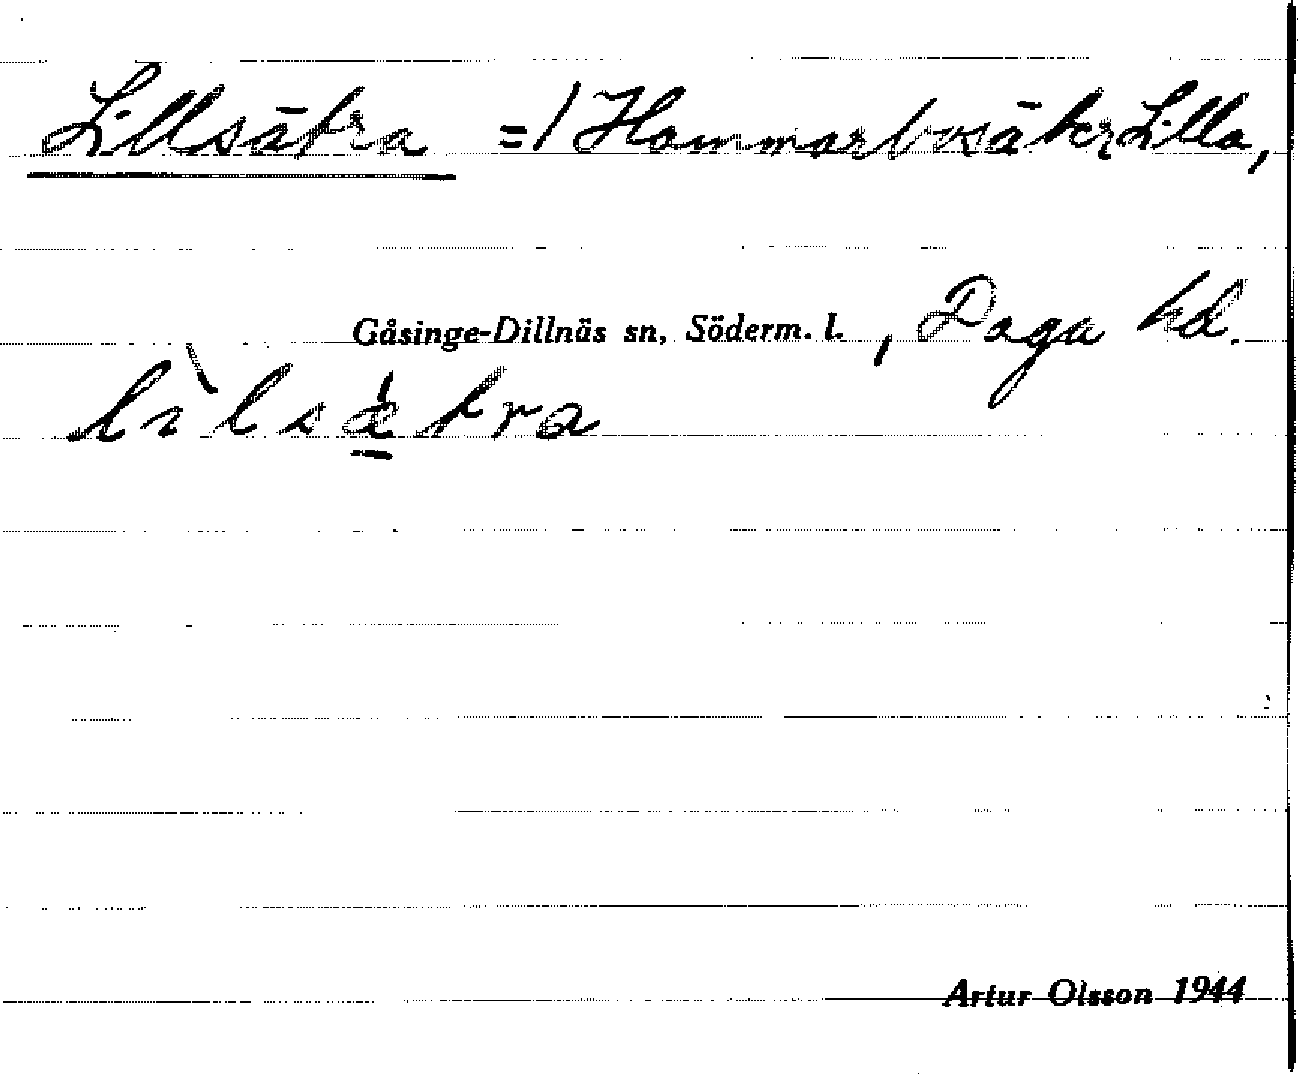 Lillsätra =/ Hammarbosäter Lilla,
Gåsinge-Dillnäs sn, Söderm. l. , Daga hd.
lìlsǽ̲tra
Artur Olsson 1944